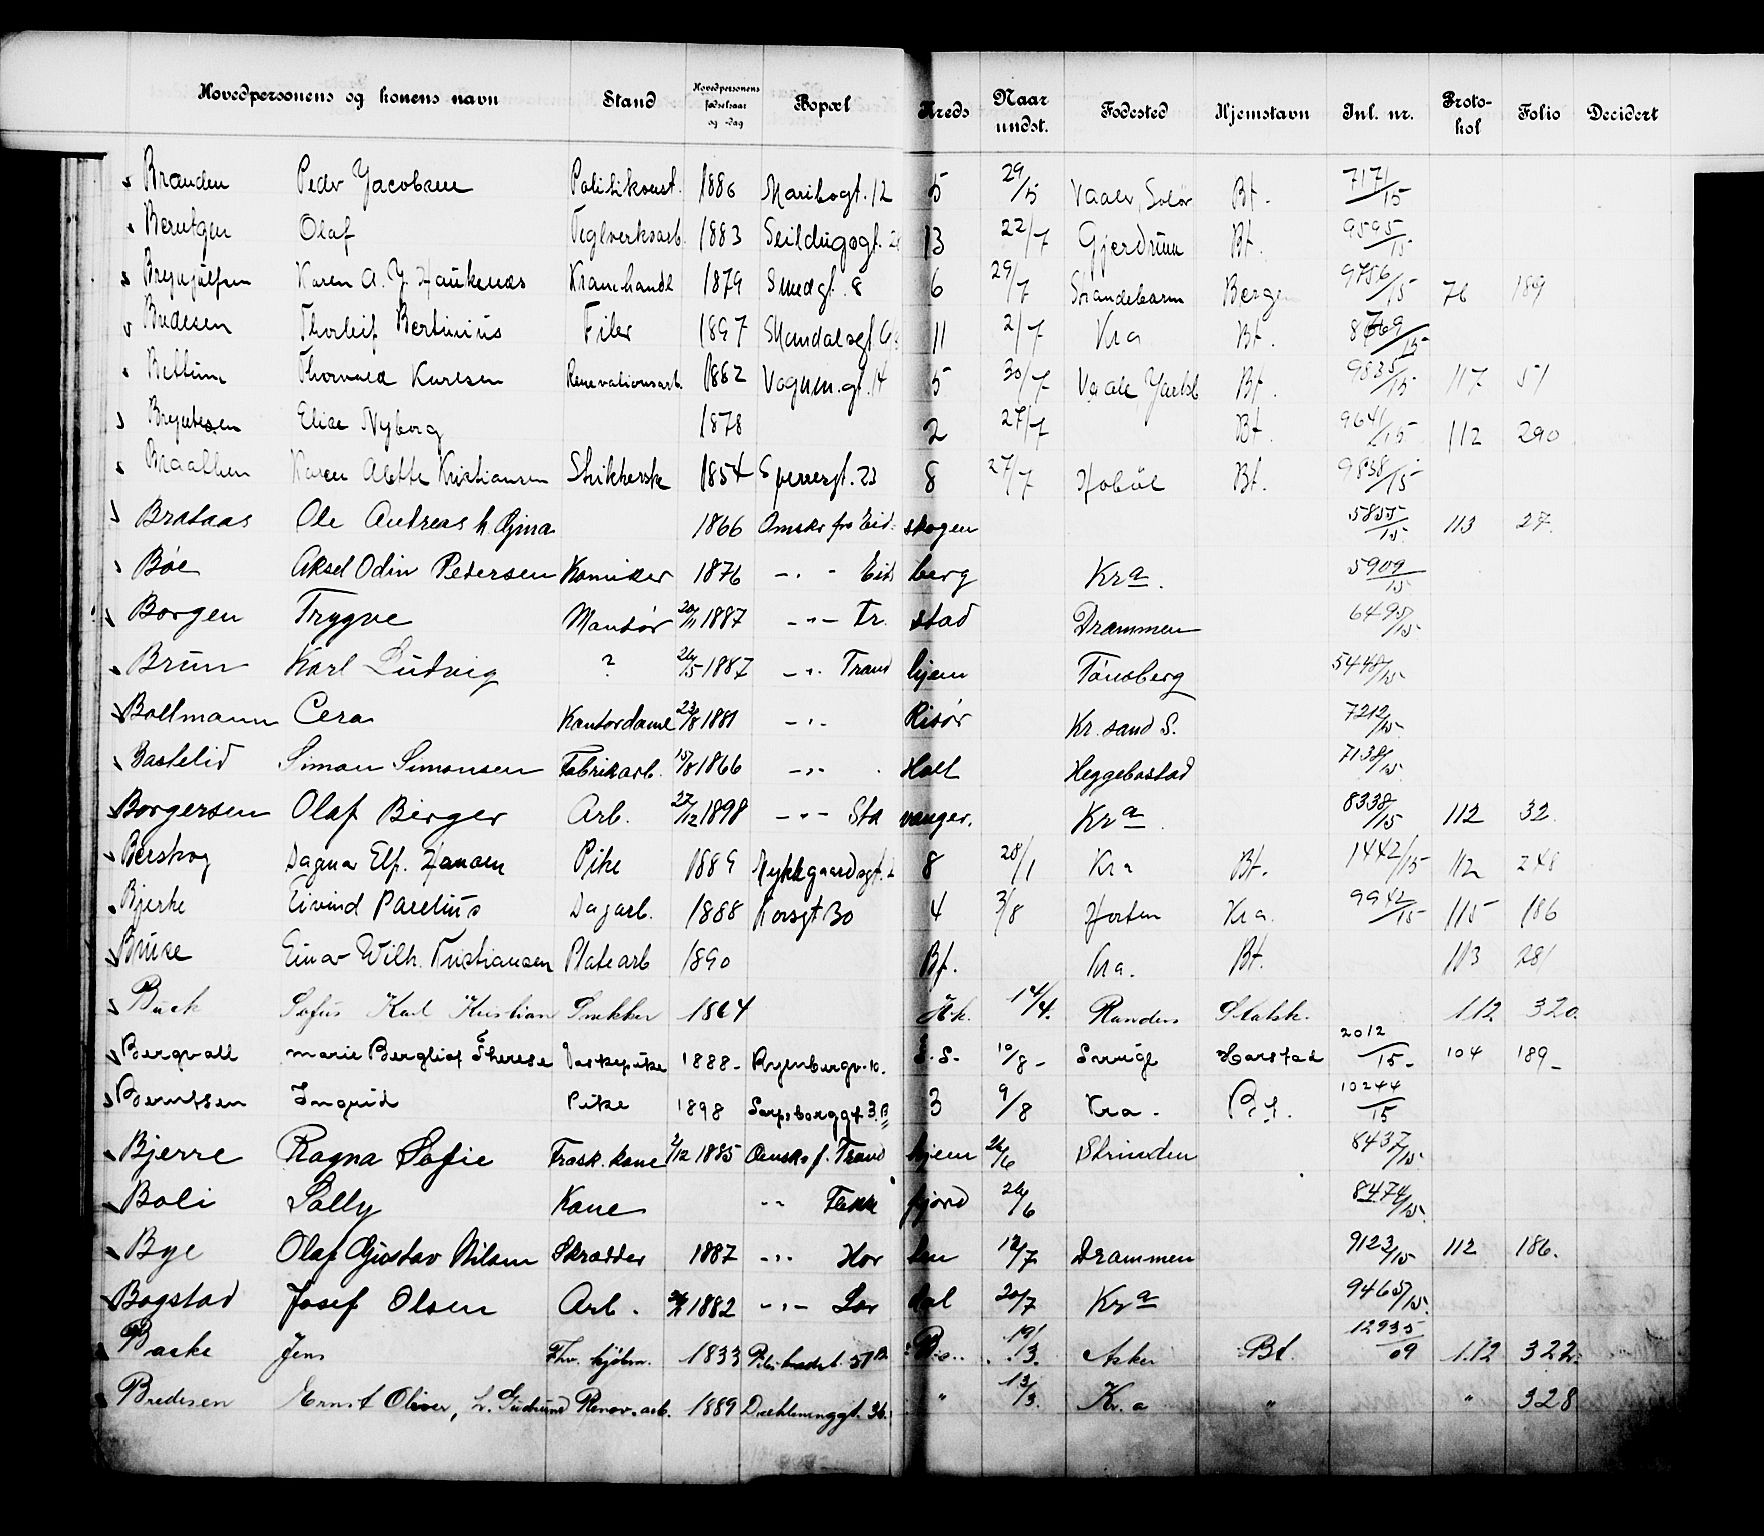 Hovedpersonens og konens navn Stand Hovedpersonens fødselsaar og -dag Bopæl Kreds Naar undst. Fødested Hjemstavn Inl. nr. Proto-kol Folio Decidert
Branden Peder Jacobsen Politikonst. 1886 Maribogt. 12 5 29/5 Vaaler, Solør Bt. 7171/15
Berntgen Olaf Teglverksarb. 1883 Seildugsgt. 13 22/7 Gjerdrum Bt. 9595/15
Brynjulfsen Karen A. J. Haukenæs Kramhandl 1879 Smedgt. 8 6 29/7 Strandebarm Bergen 9756/15 76 189
Thorleif Bertinius Filer 1897 Mandalsgt. 11 2/7 Kra Bt.
Bettum Thorvald Karlsen Renovationsarb. 1882 14 5 30/7 Vaale Jarlsb Bt. 9835/15 117 51
Bryntesen Elise Nyborg 1878 2 27/7 Bt. 9641/15 112 290
Braathen Karen Alette Kristiansen Strikkerske 1854 Sperregt. 23 8 27/7 Hobøl Bt. 9838/15
Brataas Ole Andreas h Gina 1866 Omsko fra Eid- skogen 5855/15 113 27.
Bøe Aksel Odin Pedersen Komiker 1876 -"- Eids berg Kra. 5909/15
Borgen Trygve Montør 20/11 1887 -"- Tr. stad Drammen 6495/15
Brun Karl Ludvig ? 26/5 1887 -"- Trond hjem Tønsberg 5448/15
Bollmann Cera Kontordame 23/8 1881 -"- Risør Kr. sand S. 7212/15
Bastelid Simon Simonsen Fabrikarb. 15/8 1866 -"- Holt Heggebostad 7138/15
Borgersen Olaf Birger Arb. 27/12 1898 -"- Sta vanger. Kra. 8338/15 112 32.
Berskog Dagmar Elf. Hansen Pike 1889 Nykkgaardsgt. 8 28/1 Kra Bt. 1442/15 112 248
Bjerke Eivind Parelius Dagarb. 1888 Korsgt 30 4 3/8 Horten Kra. 9942/15 115 186
Bruse Einar Wilh. Kristiansen Platearb 1890 Bf. Kra. Bt. 113 281
Buch Sofus Karl Kristian Snekker 1864 H.k. 14/4. Randers Statsk. 112 320.
Bergvall marie Bergliot Therese Vaskepike 1888 - Ryenbergv. 10. S.S. 10/8 - Sverige Harstad 2012/15 - 104 189 -
Berntsen Ingrid Pike 1898 Sarpsborggt. 3 B 3 9/8 Kra - B.t. 10244/15
Bjerre Ragna Sofie Frask. kone 2/12 1885 Omsko f. Trond hjem 26/6 Strinden 8437/15
Boli Solly Kone -"- Flekke fjord 26/6 8474/15
Bye Olaf Gustav Nilsen Skrædder 1887 -"- Hor ten 12/7 Drammen 9123/15 112 186.
Bogstad Josef Olsen Arb. 1882 -"- Lær dal 20/7 Kra 9465/15.
Bakke Jens Fhv. kjøbm. 1833 Pilestrædet. 57 B 19/3. Asker Bt. 12935/09 112 322.
Bredesen Ernst Oliver, h. Gudrund Renov. arb. 1889 36. " 13/3. Kr.a " " 328